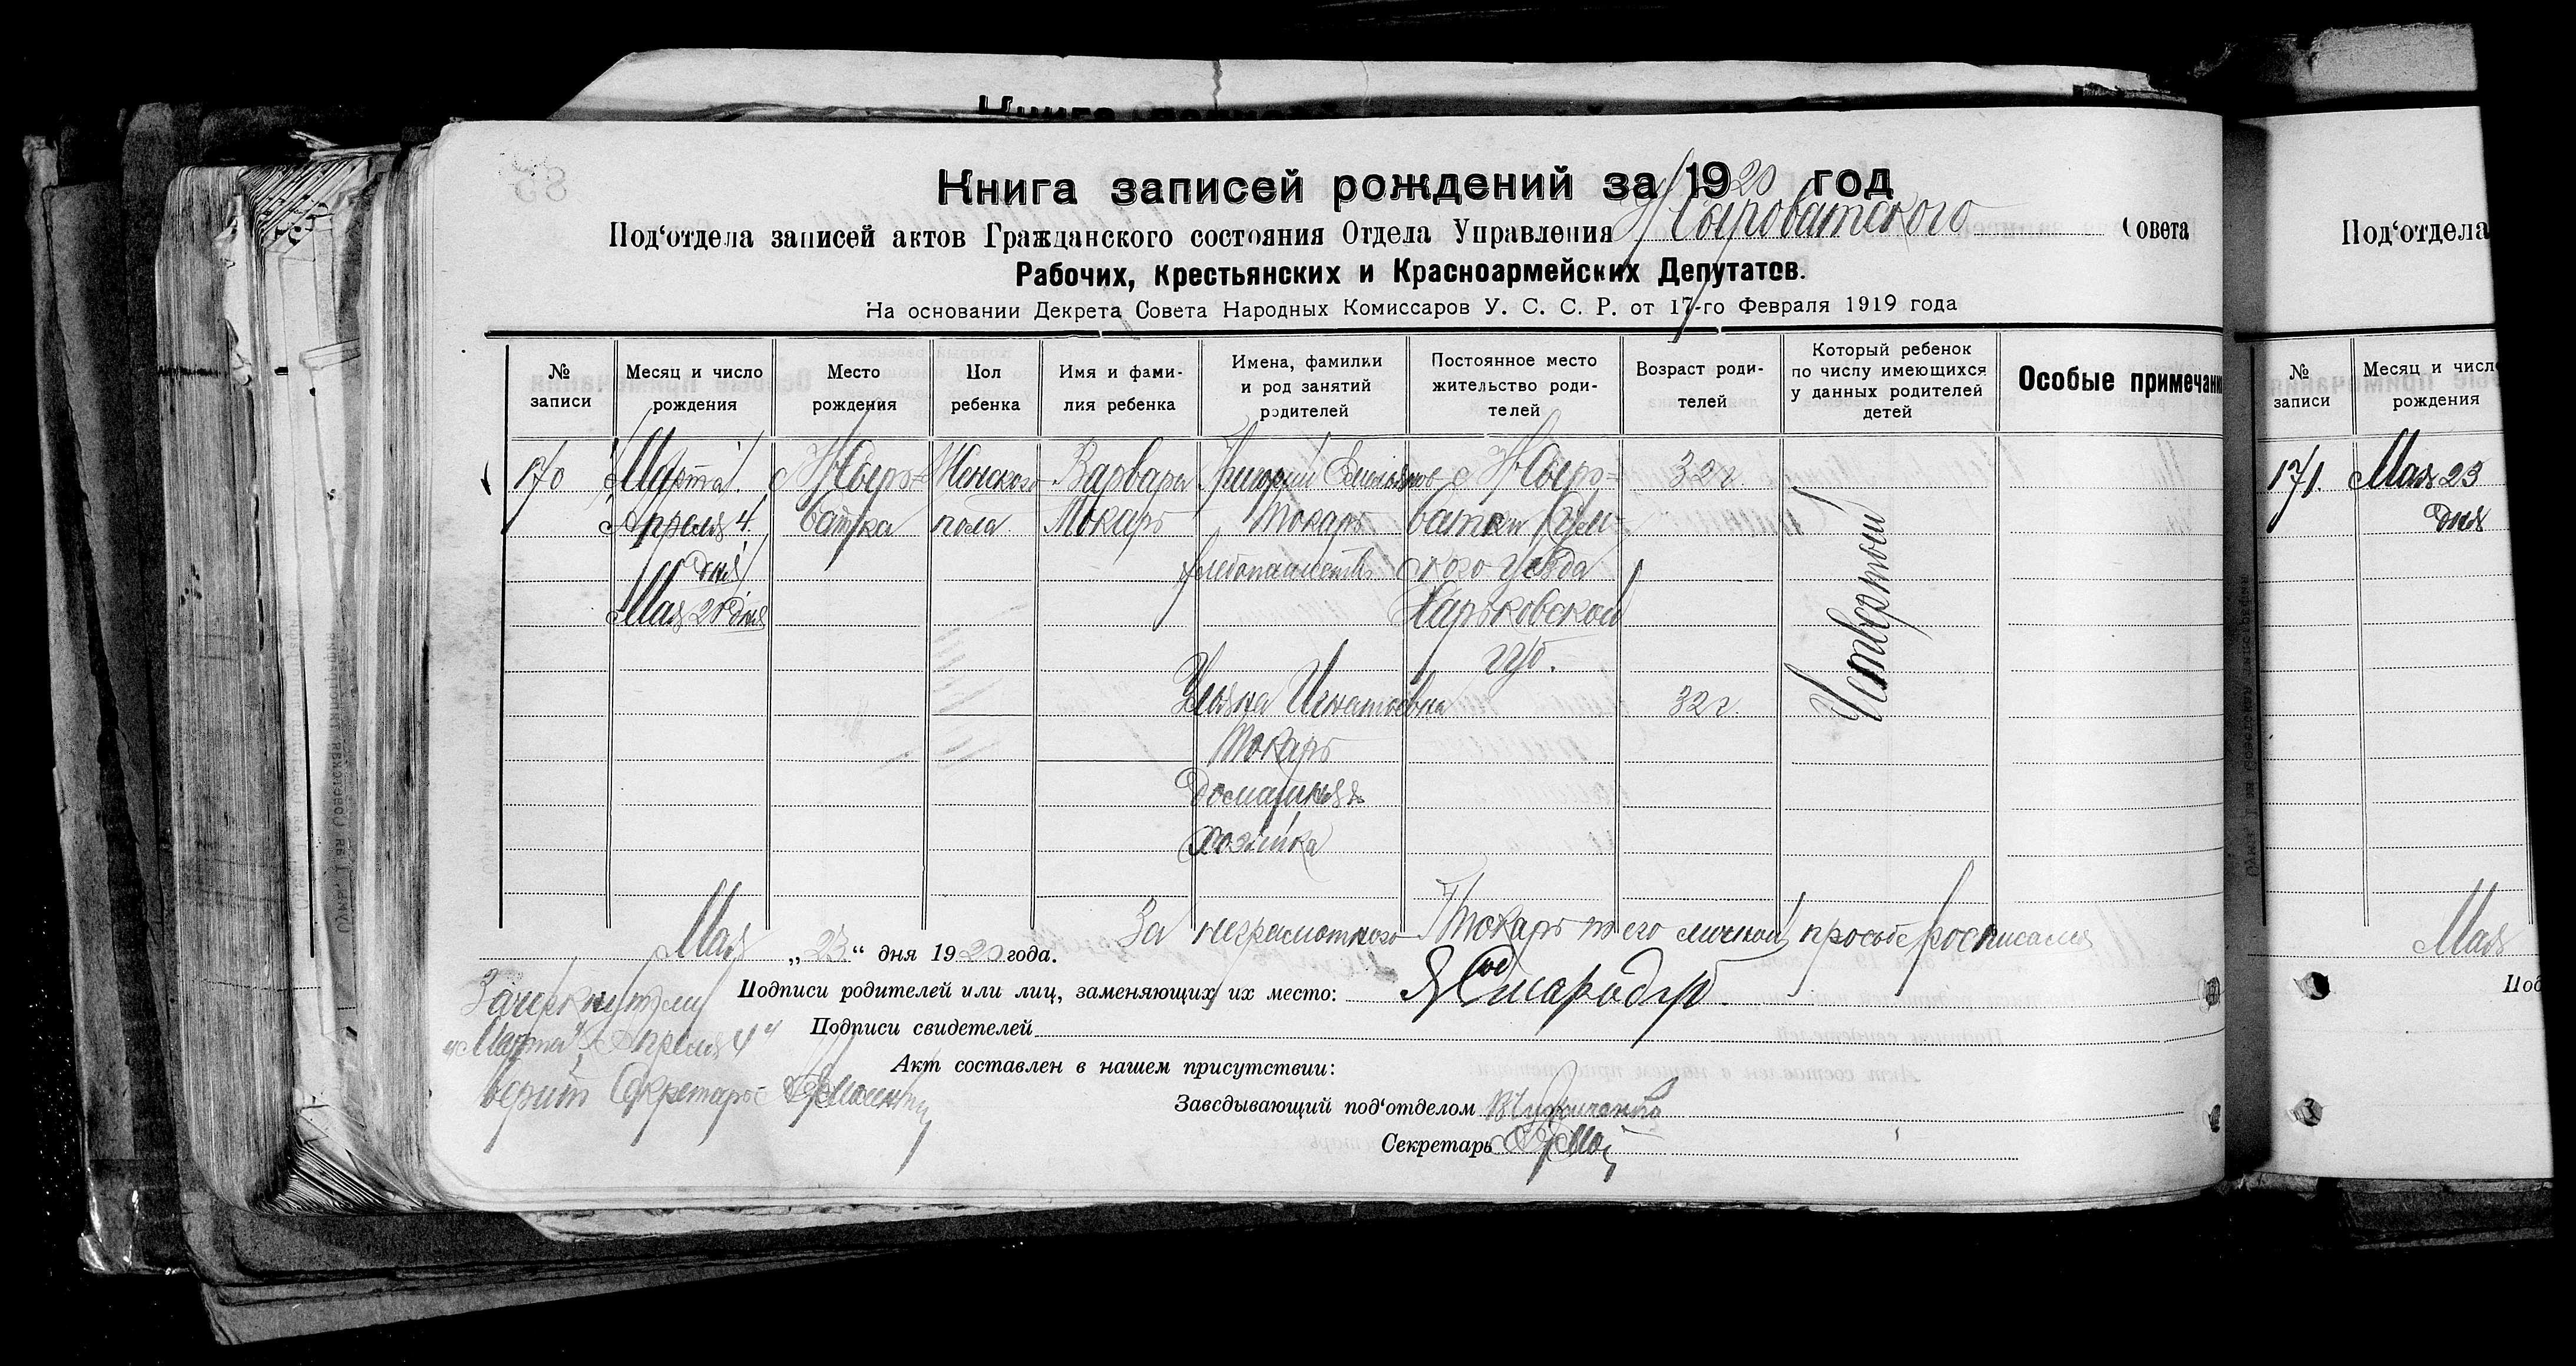 Книга записей рождений за 1920 год
Под‘отдела записей актов Гражданского состояния Отдела Управления Н Сыроватского Совета
Рабочих, Крестьянских и Красноармейских Депутатов.
На основании Декрета Совета Народных Комиссаров У. С. С. Р. от 17-го Февраля 1919 года
№ записи
Месяц и число рождения
Место рождения
Пол ребенка
Имя и фами-
лия ребенка
Имена, фамилии
и род занятий
родителей
Постоянное место
жительство роди-
телей
Возраст роди-
телей
Который ребенок
по числу имеющихся
у данных родителей
детей
Особые примечани
170
Марта
Апреля 4
дня
Мая 20 дня
с Н Сыро=
ватка
Женского
пола
Варвара
Токарь
Григорий Емельянов
Токарь
хлебопашество
Ульяна Игнатовна
Токарь
домашняя
хозяйка
с Н Сыро=
ватки Сум=
ского уезда
Харьковской
губ.
32 г.
32 г.
Четвертый
Мая „23“ дня 1920 года.
За неграмотного Токарь по его личной просьбе росписался
Подписи родителей или лиц, заменяющих их место: Я Стародуб
Подписи свидетелей
Акт составлен в нашем присутствии:
Заведывающий под‘отделом
Секретарь
Зачеркнутому
„Марта“, „Апреля 4“
верить Секретарь
Под‘отдела
№ записи
Месяц и число
рождения
171.
Мая 23
дня
Мая
Под